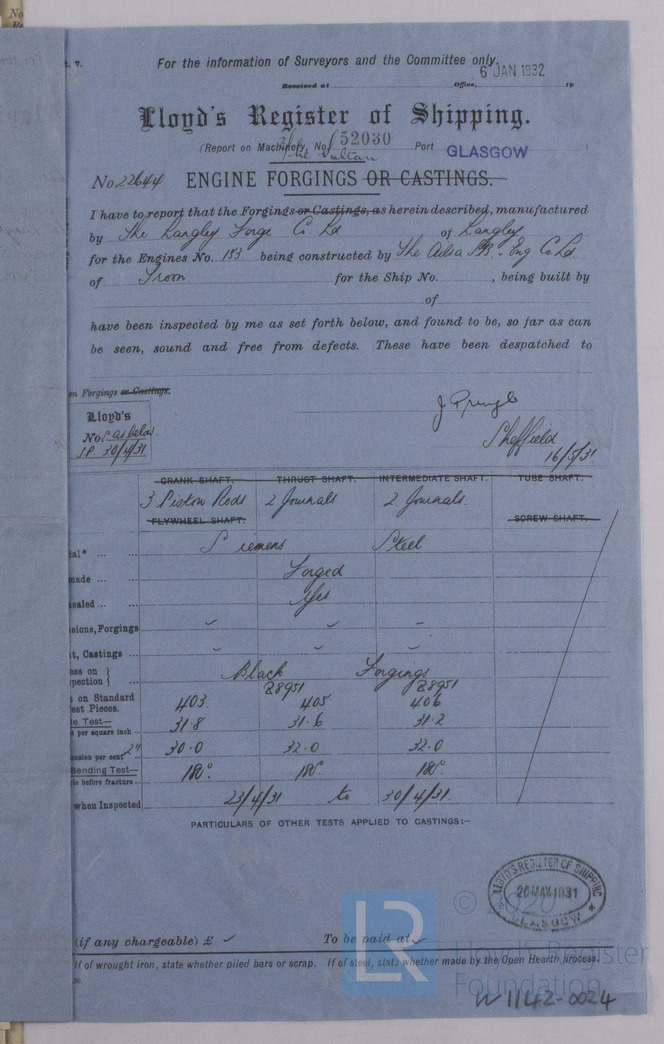 No
t. 7.
For the information of Surveyors and the Committee only.
6 JAN 1932
Received at Office, 19
Lloyd's Register of Shipping.
(Report on Machinery No 52030 Port GLASGOW
No 22644 ENGINE FORGINGS OR CASTINGS.
I have to report that the Forgings or Castings, as herein described, manufactured
by The Langley Forge Co. Ld of Langley
for the Engines No. 153 being constructed by The Ailsa SB. & Eng Co. Ld.
of Troon. for the Ship No. , being built by
of
have been inspected by me as set forth below, and found to be, so far as can
be seen, sound and free from defects. These have been despatched to
en Forgings or Castings.
Lloyd's
No as below.
J.P. 30/4/31
J Pringle
Sheffield
16/5/31
CRANK SHAFT. THRUST SHAFT. INTERMEDIATE SHAFT. TUBE SHAFT.
3 Piston Rods 2 Journals 2 Journals.
FLYWHEEL SHAFT. SCREW SHAFT.
ial* ... ... Siemens Steel
made ... ... Forged
ealed ... ... Yes
sions, Forgings
t, Castings ...
ess on
pection Black Forgings
28951 28951
s on Standard
est Pieces. 403. 405 406
le Test—
s per square inch 31.8 31.6 31.2
ension per cent 2" 30.0 32.0 32.0
Bending Test—
gle before fracture 180°. 180°. 180°.
when Inspected 23/4/31 to 30/4/31.
PARTICULARS OF OTHER TESTS APPLIED TO CASTINGS:—
LLOYD'S REGISTER OF SHIPPING
20 MAY 1931
GLASGOW
(if any chargeable) £ To be paid at
If of wrought iron, state whether piled bars or scrap. If of steel, state whether made by the Open Hearth process.
LR
© 2020
Lloyd's Register
Foundation
W1142-0024